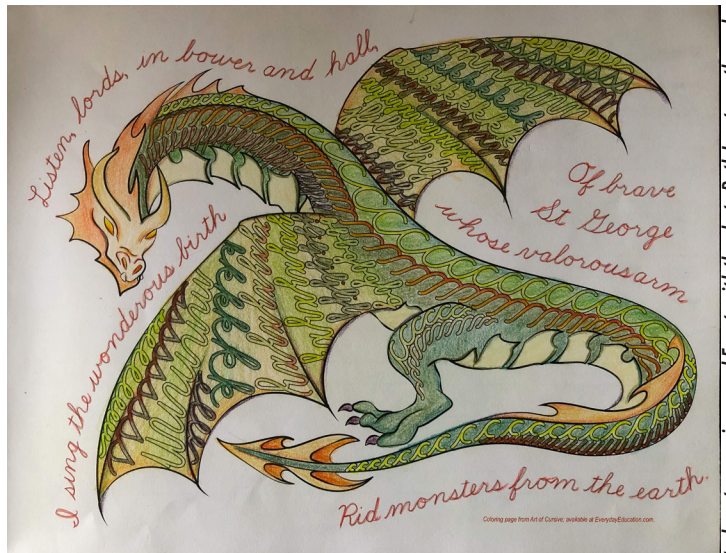 Listen, lords, in bower and hall,
I sing the wonderous birth
Of brave
St George
whose valorous arm
Rid monsters from the earth.
Coloring page from Art of Cursive; available at EverydayEducation.com.